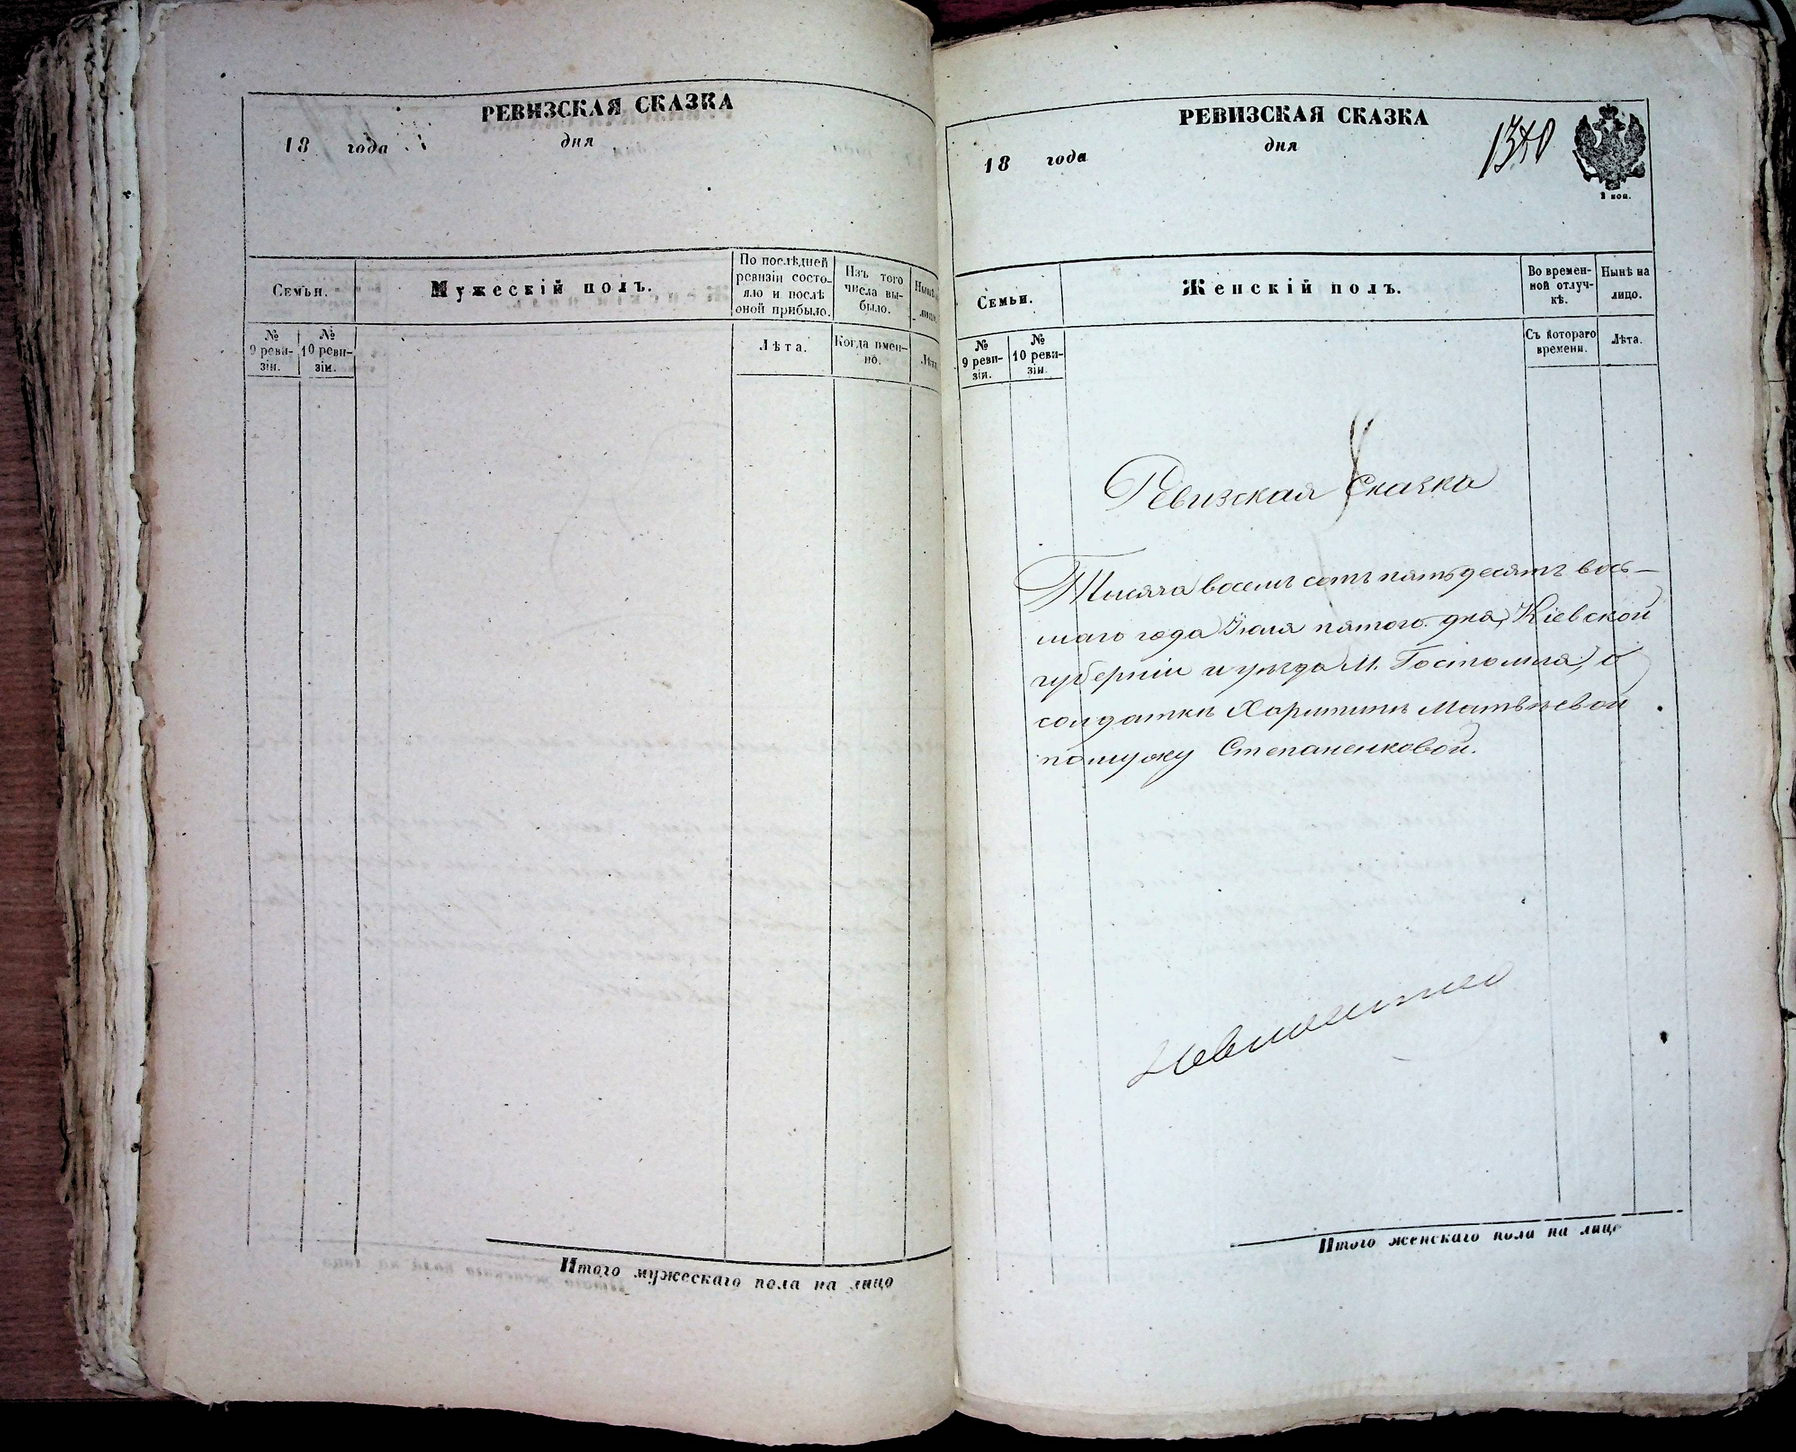 РЕВИЗСКАЯ СКАЗКА
18 года дня
Семьи.
Мужескій полъ.
По послѣдней ревизіи состояло и послѣ оной прибыло.
Изъ того числа выбыло.
№ 9 ревизіи.
№ 10 ревизіи.
Лѣта.
Когда именно.
Итого мужескаго пола на лицо
РЕВИЗСКАЯ СКАЗКА
18 года дня
2 коп.
Семьи.
Женскій полъ.
Во временной отлучкѣ.
Нынѣ на лицо.
№ 9 ревизіи.
№ 10 ревизіи.
Съ котораго времени.
Лѣта.
Ревизская Сказка
Тысяча восемь сотъ пятьдесятъ вось-
маго года Іюля пятого дня, Кіевской
губерніи и уѣзда М. Гостомля, о
солдаткѣ Харитинѣ Матвѣевой
по мужу Степаненковой.
Итого женскаго пола на лицо